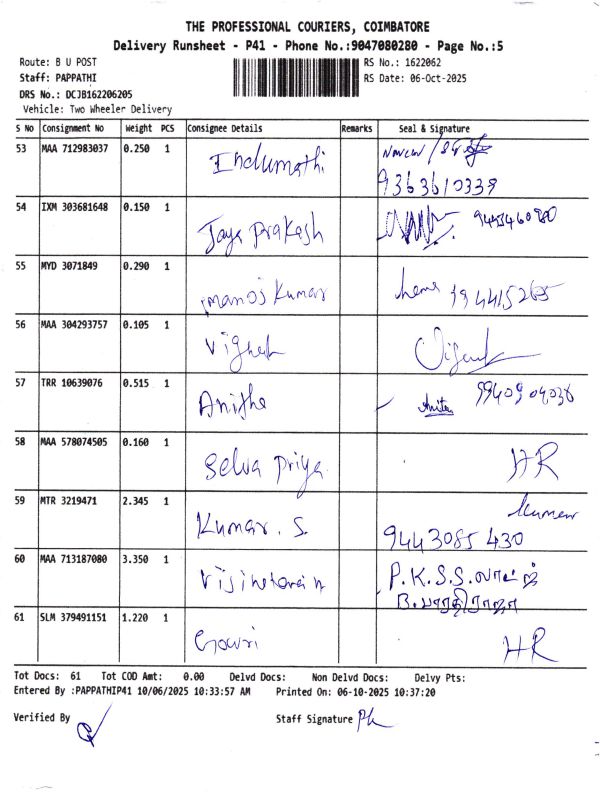 THE PROFESSIONAL COURIERS, COIMBATORE
Delivery Runsheet - P41 - Phone No.:9047080280 - Page No.:5
Route: B U POST
RS No.: 1622062
Staff: PAPPATHI
RS Date: 06-Oct-2025
DRS No.: DCJB162206205
Vehicle: Two Wheeler Delivery
S No Consignment No Weight PCS Consignee Details Remarks Seal & Signature
53 MAA 712983037 0.250 1 Indumathi
9363610339
54 IXM 303681648 0.150 1 Jaya prakash
55 MYD 3071849 0.290 1 manoj kumar hema
56 MAA 304293757 0.105 1 Vignesh
57 TRR 10639076 0.515 1 Anitha Anitha 9940904038
58 MAA 578074505 0.160 1 Selva priya HR
59 MTR 3219471 2.345 1 Kumar . S.
9443085430
60 MAA 713187080 3.350 1 P.K.S.S.
B. பாரதிராஜா
61 SLM 379491151 1.220 1 Gowri HR
Tot Docs: 61 Tot COD Amt: 0.00 Delvd Docs: Non Delvd Docs: Delvy Pts:
Entered By :PAPPATHIP41 10/06/2025 10:33:57 AM Printed On: 06-10-2025 10:37:20
Verified By Staff Signature